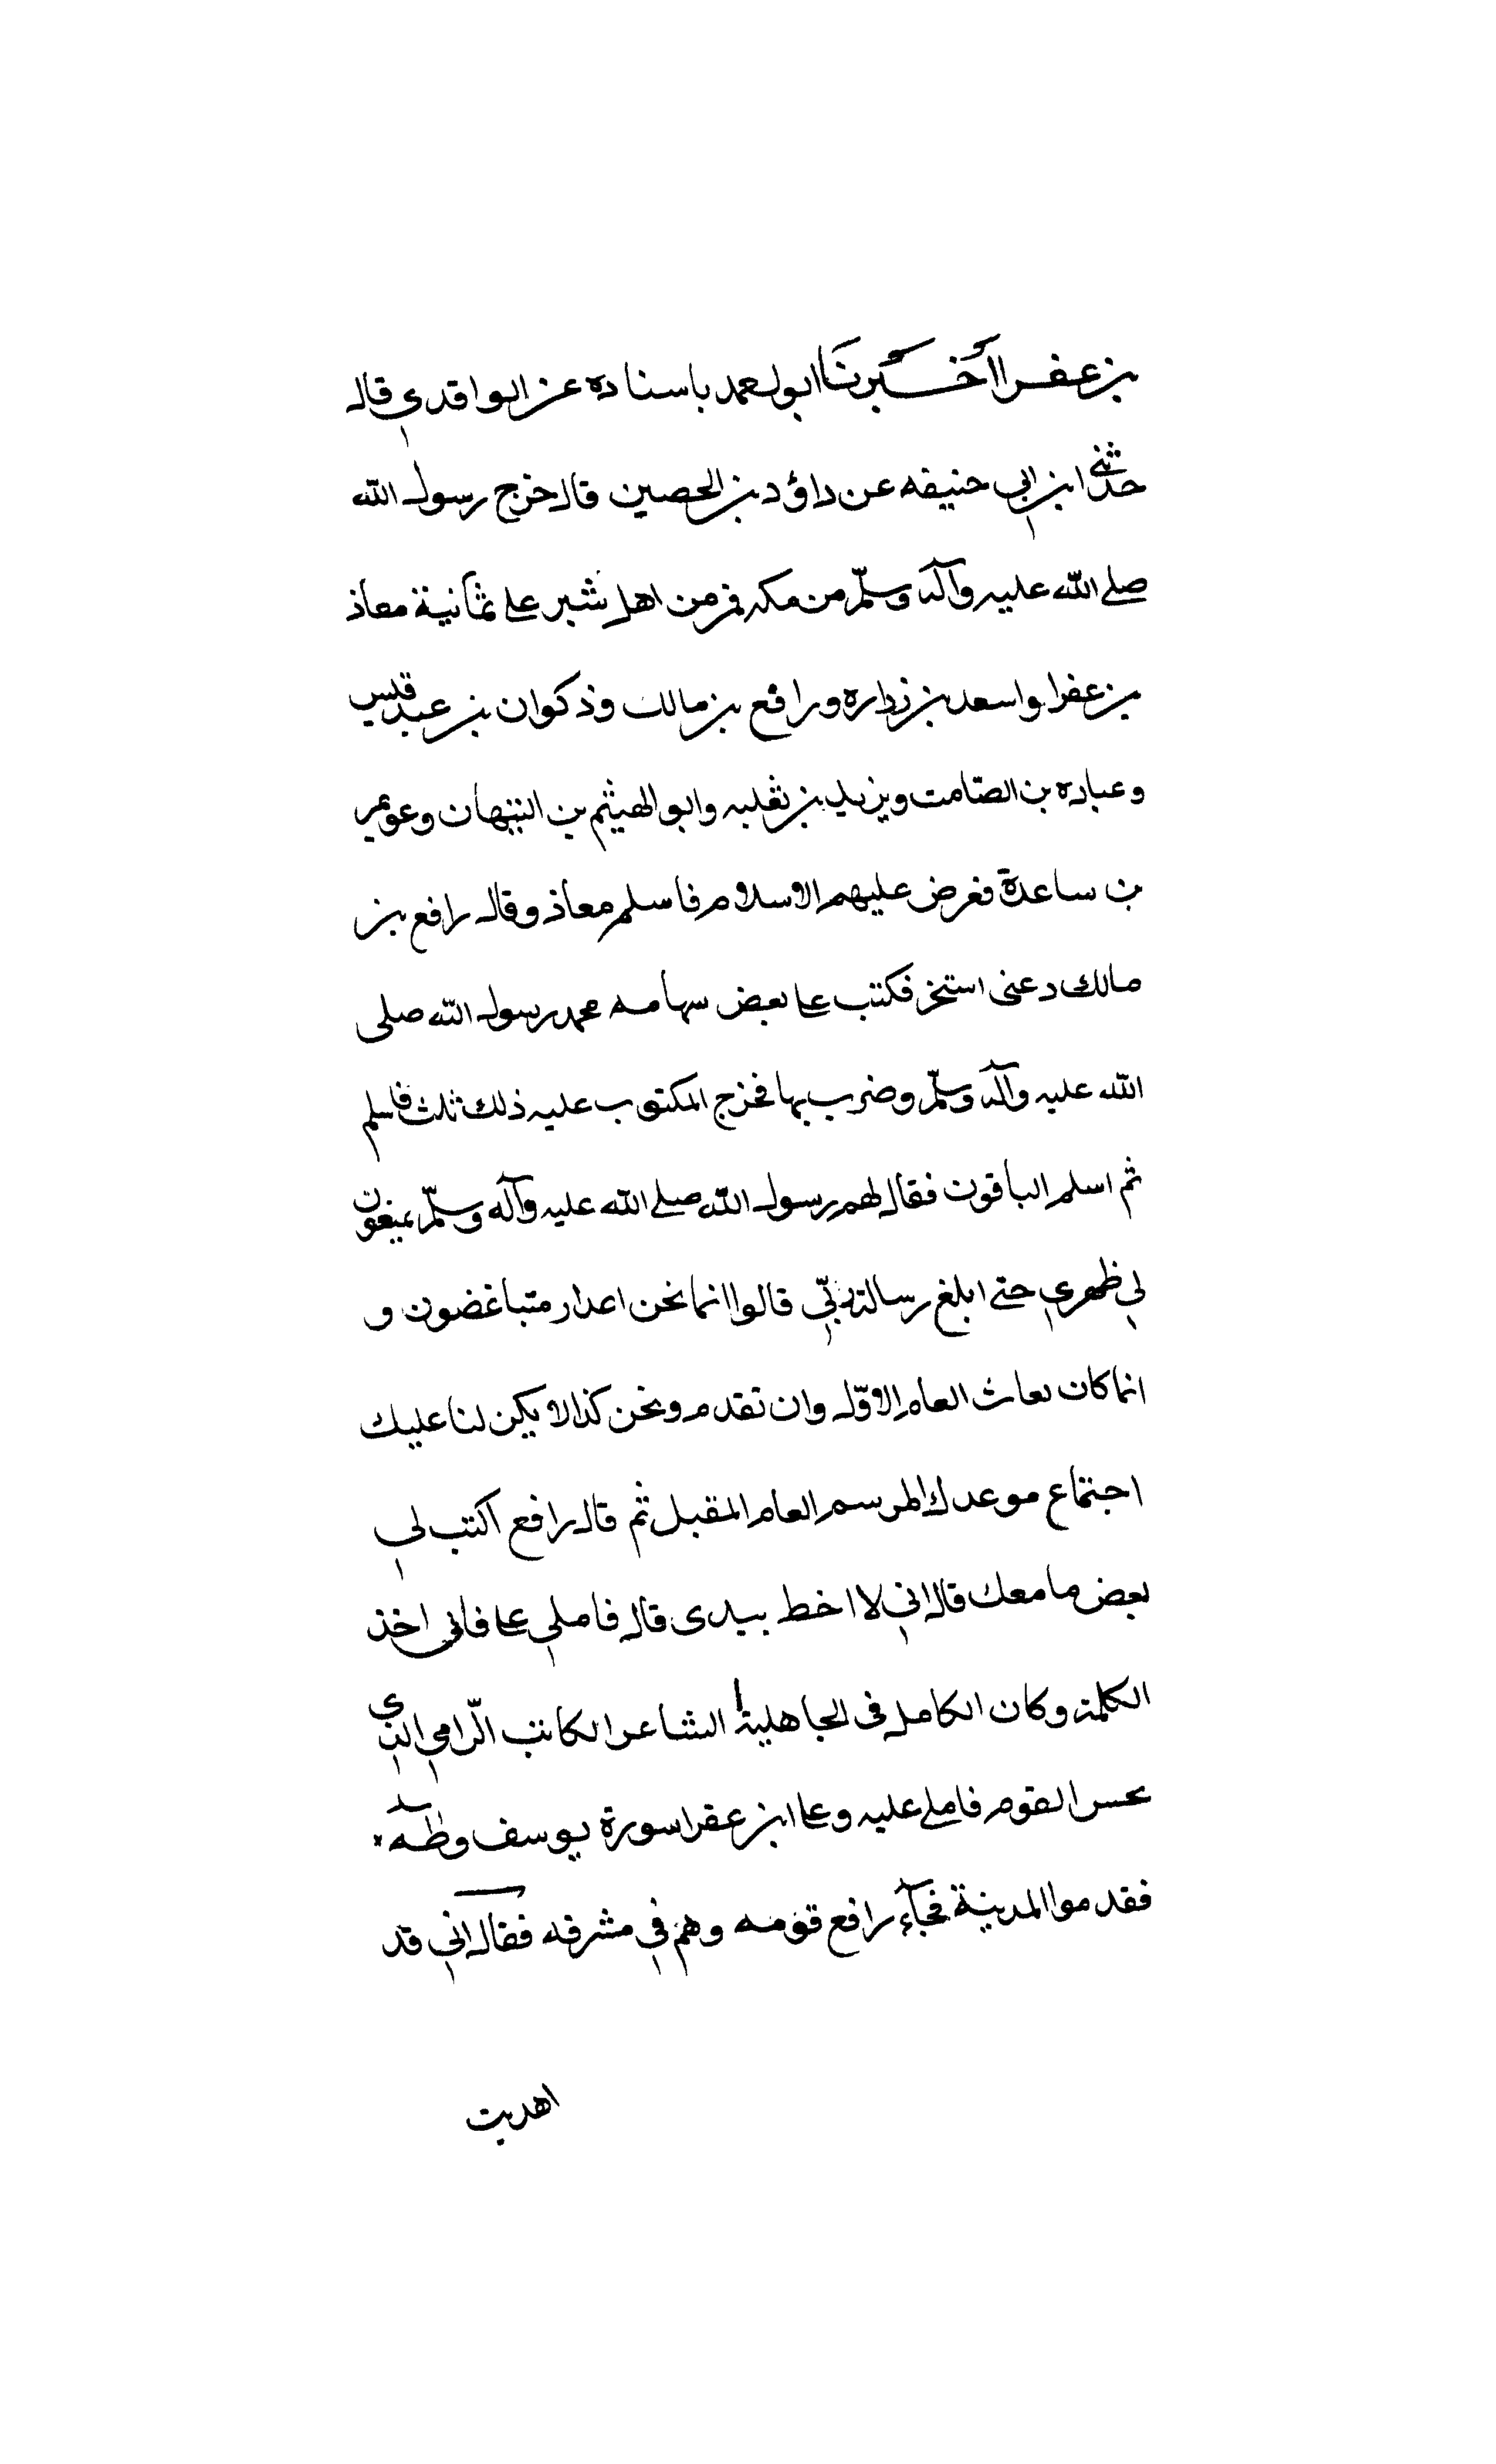 بن عفرا اَخْبَرنَا ابو احمد باسناده عن الواقدي قال
حدثني ابن ابي حنيفه عن داؤد بن الحصين قال خرج رسول الله
صلى الله عليه وآله وسلّم من مكه فمر من اهل يثبر على ثمانية معاذ
بن عفرا واسعد بن زراره ورافع بن مالك وذكوان بن عبد قيس
وعباده بن الصّامت ويزيد بن ثعلبه وابو الهيثم بن التيهان وعويمر
بن ساعدة فعرض عليهم الاسلام فاسلم معاذ وقال رافع بن
مالك دعني استخر فكتب على بعض سهامه محمد رسول الله صلى
الله عليه وآله وسلّم وضرب بها فخرج المكتوب عليه ذلك ثلث فاسلم
ثم اسلم الباقون فقال لهم رسول الله صلى الله عليه وآله وسلّم يمنعون
لي ظهري حتى ابلغ رسالة ربّي قالوا انما نحن اعدار متباغضون و
انما كان بعاث العام الاوّل وان تقدم ونحن كذا لا يكن لنا عليك
اجتماع موعدك الموسم العام المقبل ثم قال رافع اكتب لي
بعض ما معك قال اني لا اخط بيدى قال فاملي على فانى اخذ
الكلمة وكان الكامل فى الجاهلية الشاعر الكاتب الرّامي الذي
يحسن القوم فاملى عليه وعلى ابن عفرا سورة يوسف وطه
فقدموا المدينة فجآء رافع قومه وهم في مشرفه فقال اني قد
اهديت